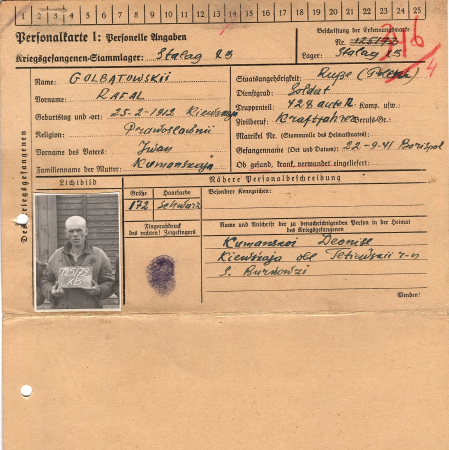 1 2 3 4 5 6 7 8 9 10 11 12 13 14 15 16 17 18 19 20 21 22 23 24 25
Personalkarte I: Personelle Angaben
Kriegsgefangenen-Stammlager: Stalag XB
Beschriftung der Erkennungsmarke
Nr.
Lager: Stalag XB
Des Kriegsgefangenen
Name: GOLBATOWSKII
Vorname: RAFAL
Geburtstag und -ort: 25-2-1912 Kiewskaja
Religion: Prawoslawnii
Vorname des Vaters: Iwan
Familienname der Mutter: Kumanskaja
Staatsangehörigkeit: Russe
Dienstgrad: Soldat
Truppenteil: 428 auto Komp. usw.:
Zivilberuf: Kraftfahrer Berufs-Gr.:
Matrikel Nr. (Stammrolle des Heimatstaates):
Gefangennahme (Ort und Datum): 22-9-41 Borispol
Ob gesund, krank, verwundet eingeliefert:
Lichtbild
Nähere Personalbeschreibung
Größe Haarfarbe Besondere Kennzeichen:
172 schwarz
Fingerabdruck
des rechten Zeigefingers
Name und Anschrift der zu benachrichtigenden Person in der Heimat
des Kriegsgefangenen
Kumanskoi Deonise
Kiewskaja obl Tetiewskii r-n
S.
Wenden!
XB